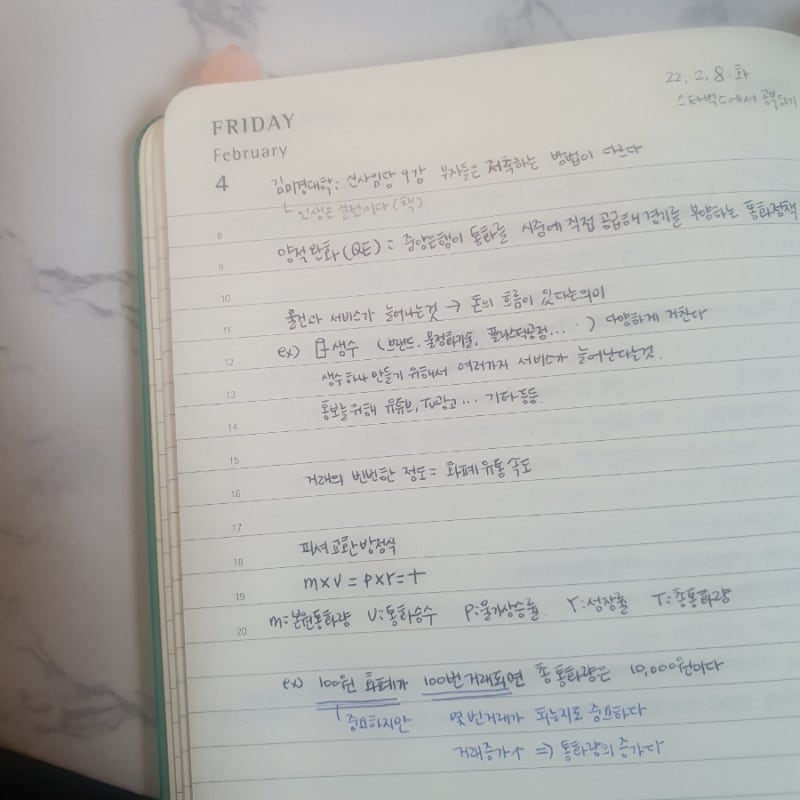 22. 2. 8. 화
스타벅스에서 공부하기
FRIDAY
February
4
김미경대학: 신사임당 9강 부자들은 저축하는 방법이 다르다
인생은 실전이다 (책)
8
양적완화(QE) : 중앙은행이 통화를 시중에 직접 공급해 경기를 부양하는 통화정책
9
10
물건과 서비스가 늘어나는것 → 돈의 흐름이 있다는의미
11
ex) 생수 (브랜드. 물정화기술, 플라스틱공정... · ) 다양하게 거친다
12
생수하나 만들기 위해서 여러가지 서비스가 늘어난다는것.
13
홍보를 위해 유튜브, TV광고... 기타등등.
14
15
거래의 빈번한 정도 = 화폐유통 속도
16
17
피셔교환방정식
18
m×v = p×r = t
19
m=본원통화량 V:통화승수 P:물가상승률. Y:성장률 T:총통화량
20
ex) 100원 화폐가 100번거래되면 총 통화량은 10,000원이다
중요하지만 몇번거래가 되는지도 중요하다
거래증가↑ ⇒ 통화량의 증가다